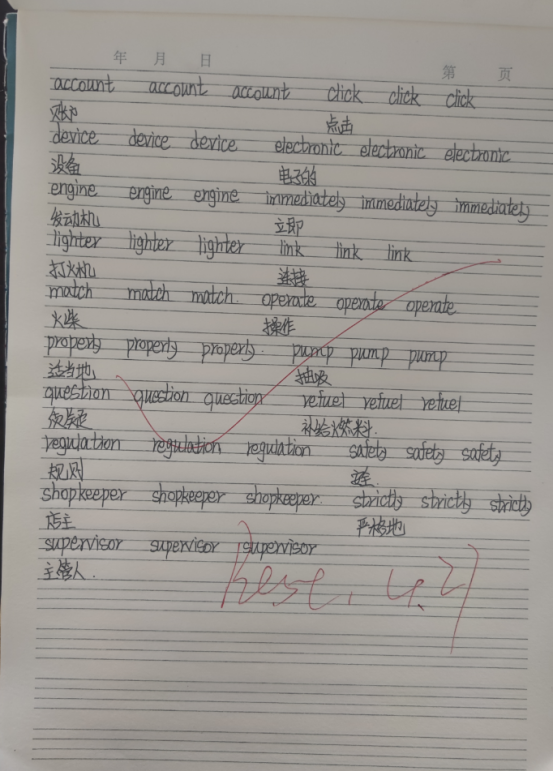 年 月 日
第 页
account account account click click click
账户 点击
device device device electronic electronic electronic
设备 电子的
engine engine engine immediately immediately immediately
发动机 立即
lighter lighter lighter link link link
打火机 连接
match match match. operate operate operate
火柴 操作
properly properly properly. pump pump pump
适当地 抽吸
question question question refuel refuel refuel
补给燃料.
regulation regulation regulation safety safety safety
规则
shopkeeper shopkeeper shopkeeper. strictly strictly strictly
店主 严格地
supervisor supervisor supervisor
主管人.